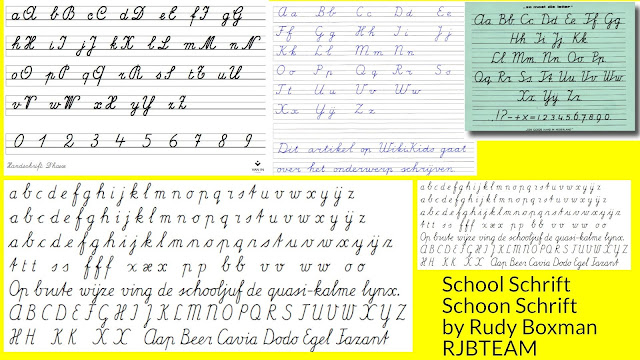 aA bB cC dD eE fF gG
hH iI jJ kK lL mM nN
oO pP qQ rR sS tT uU
vV wW xX yY zZ
0 1 2 3 4 5 6 7 8 9
Handschrift Dhaese
VAN IN
Aa Bb Cc Dd Ee
Ff Gg Hh Ii Jj
Kk Ll Mm Nn
Oo Pp Qq Rr Ss
Tt Uu Vv Ww
Xx Yÿ Zz
Dit artikel op WikiKids gaat
over het onderwerp schrijven.
„zo moet die letter"
Aa Bb Cc Dd Ee Ff Gg
Hh Ii Jj Kk
Ll Mm Nn Oo Pp
Qq Rr Ss Tt Uu Vv Ww
Xx Yy Zz
.,!?-+x=1234567890.
abcdefghijklmnopqrstuvwxyÿz
abcdefghijklmnopqrstuvwxyÿz
abcdefghijklmnopqrstuvwxyÿz
ttt ss fff xxx pp bb vv ww oo
Op brute wijze ving de schooljuf de quasi-kalme lynx.
ABCDEFGHIJKLMNOPQRSTUVWXYZ
HH KK XX Aap Beer Cavia Dodo Egel Fazant
abcdefghijklmnopqrstuvwxyÿz
abcdefghijklmnopqrstuvwxyÿz
abcdefghijklmnopqrstuvwxyÿz
ttt ss fff xxx pp bb vv ww oo
Op brute wijze ving de schooljuf de quasi-kalme lynx.
ABCDEFGHIJKLMNOPQRSTUVWXYZ
HH KK XX Aap Beer Cavia Dodo Egel Fazant
School Schrift
Schoon Schrift
by Rudy Boxman
RJBTEAM